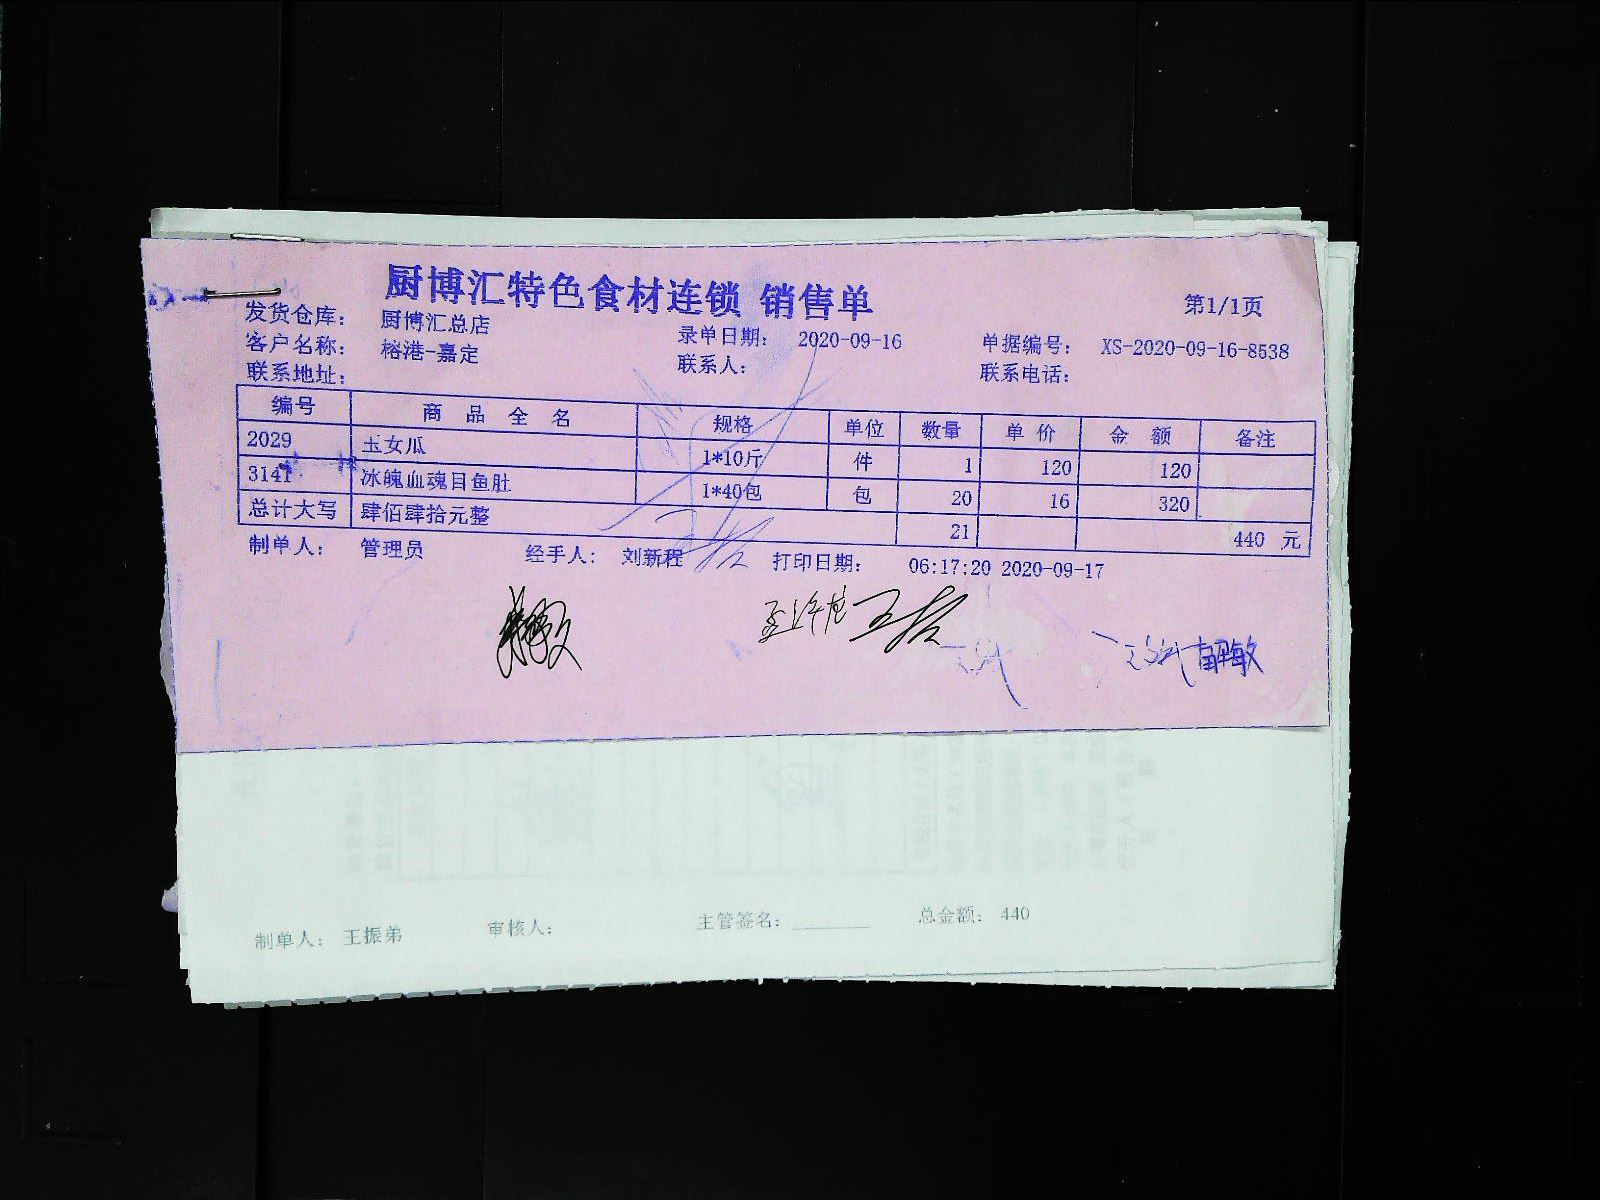 厨博汇特色食材连锁 销售单
第1/1页
发货仓库： 厨博汇总店 录单日期： 2020-09-16 单据编号： XS-2020-09-16-8538
客户名称： 榕港-嘉定 联系人： 联系电话：
联系地址：
编号 商品全名 规格 单位 数量 单价 金额 备注
2029 玉女瓜 1*10斤 件 1 120 120
3141 冰魄血魂目鱼肚 1*40包 包 20 16 320
总计大写 肆佰肆拾元整 21 440 元
制单人： 管理员 经手人： 刘新程 打印日期： 06:17:20 2020-09-17
制单人： 王振弟 审核人： 主管签名： 总金额： 440